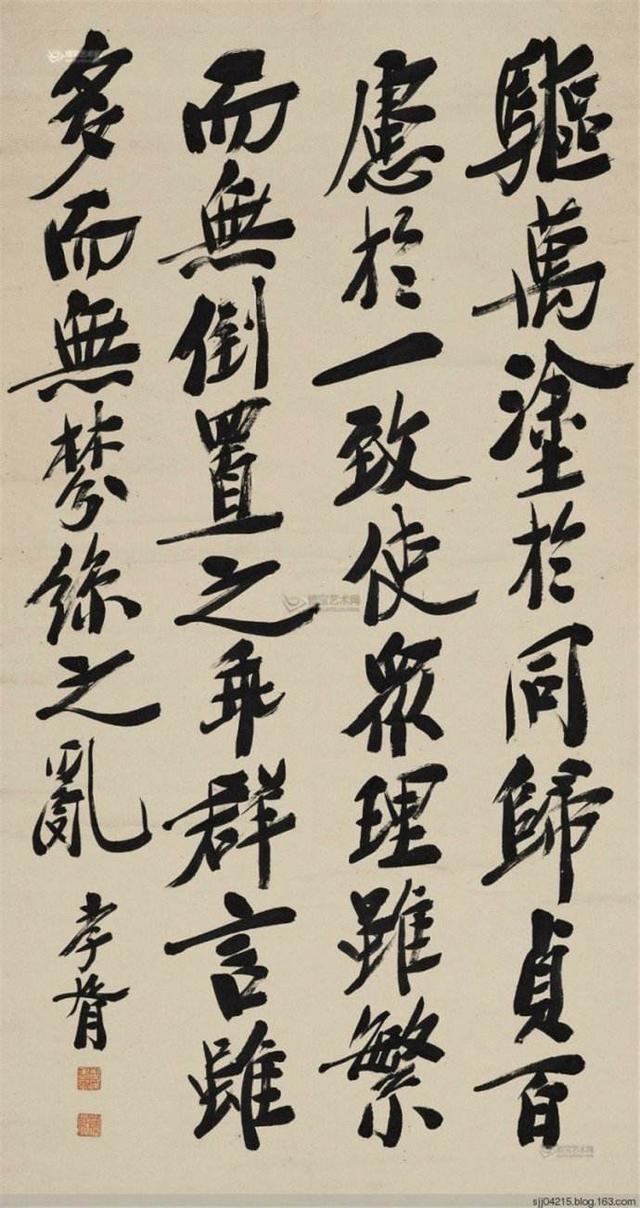 驅萬塗於同歸貞百
慮於一致使眾理雖繁
而無倒置之乖群言雖
多而無棼絲之亂
孝胥
sjj04215.blog.163.com